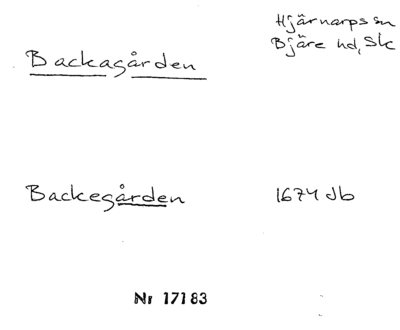 Hjärnarps sn
Bjäre hd, Sk
Backagården
Backegården 1674 Jb
Nr 17183